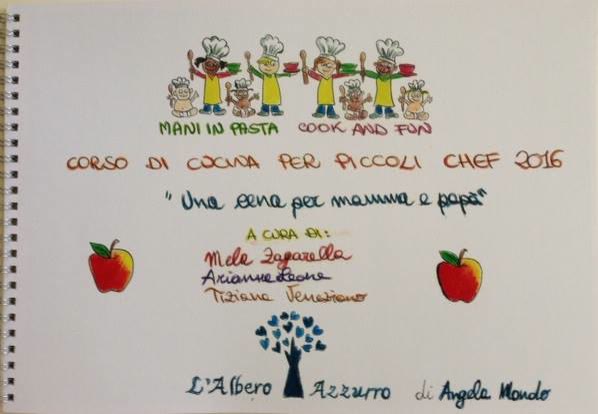 MANI IN PASTA COOK AND FUN
CORSO DI CUCINA PER PICCOLI CHEF 2016
"Una cena per mamma e papà"
A CURA DI:
Mela Zagarella
Arianna Leone
Tiziana Veneziano
L'Albero Azzurro di Angela Mondo